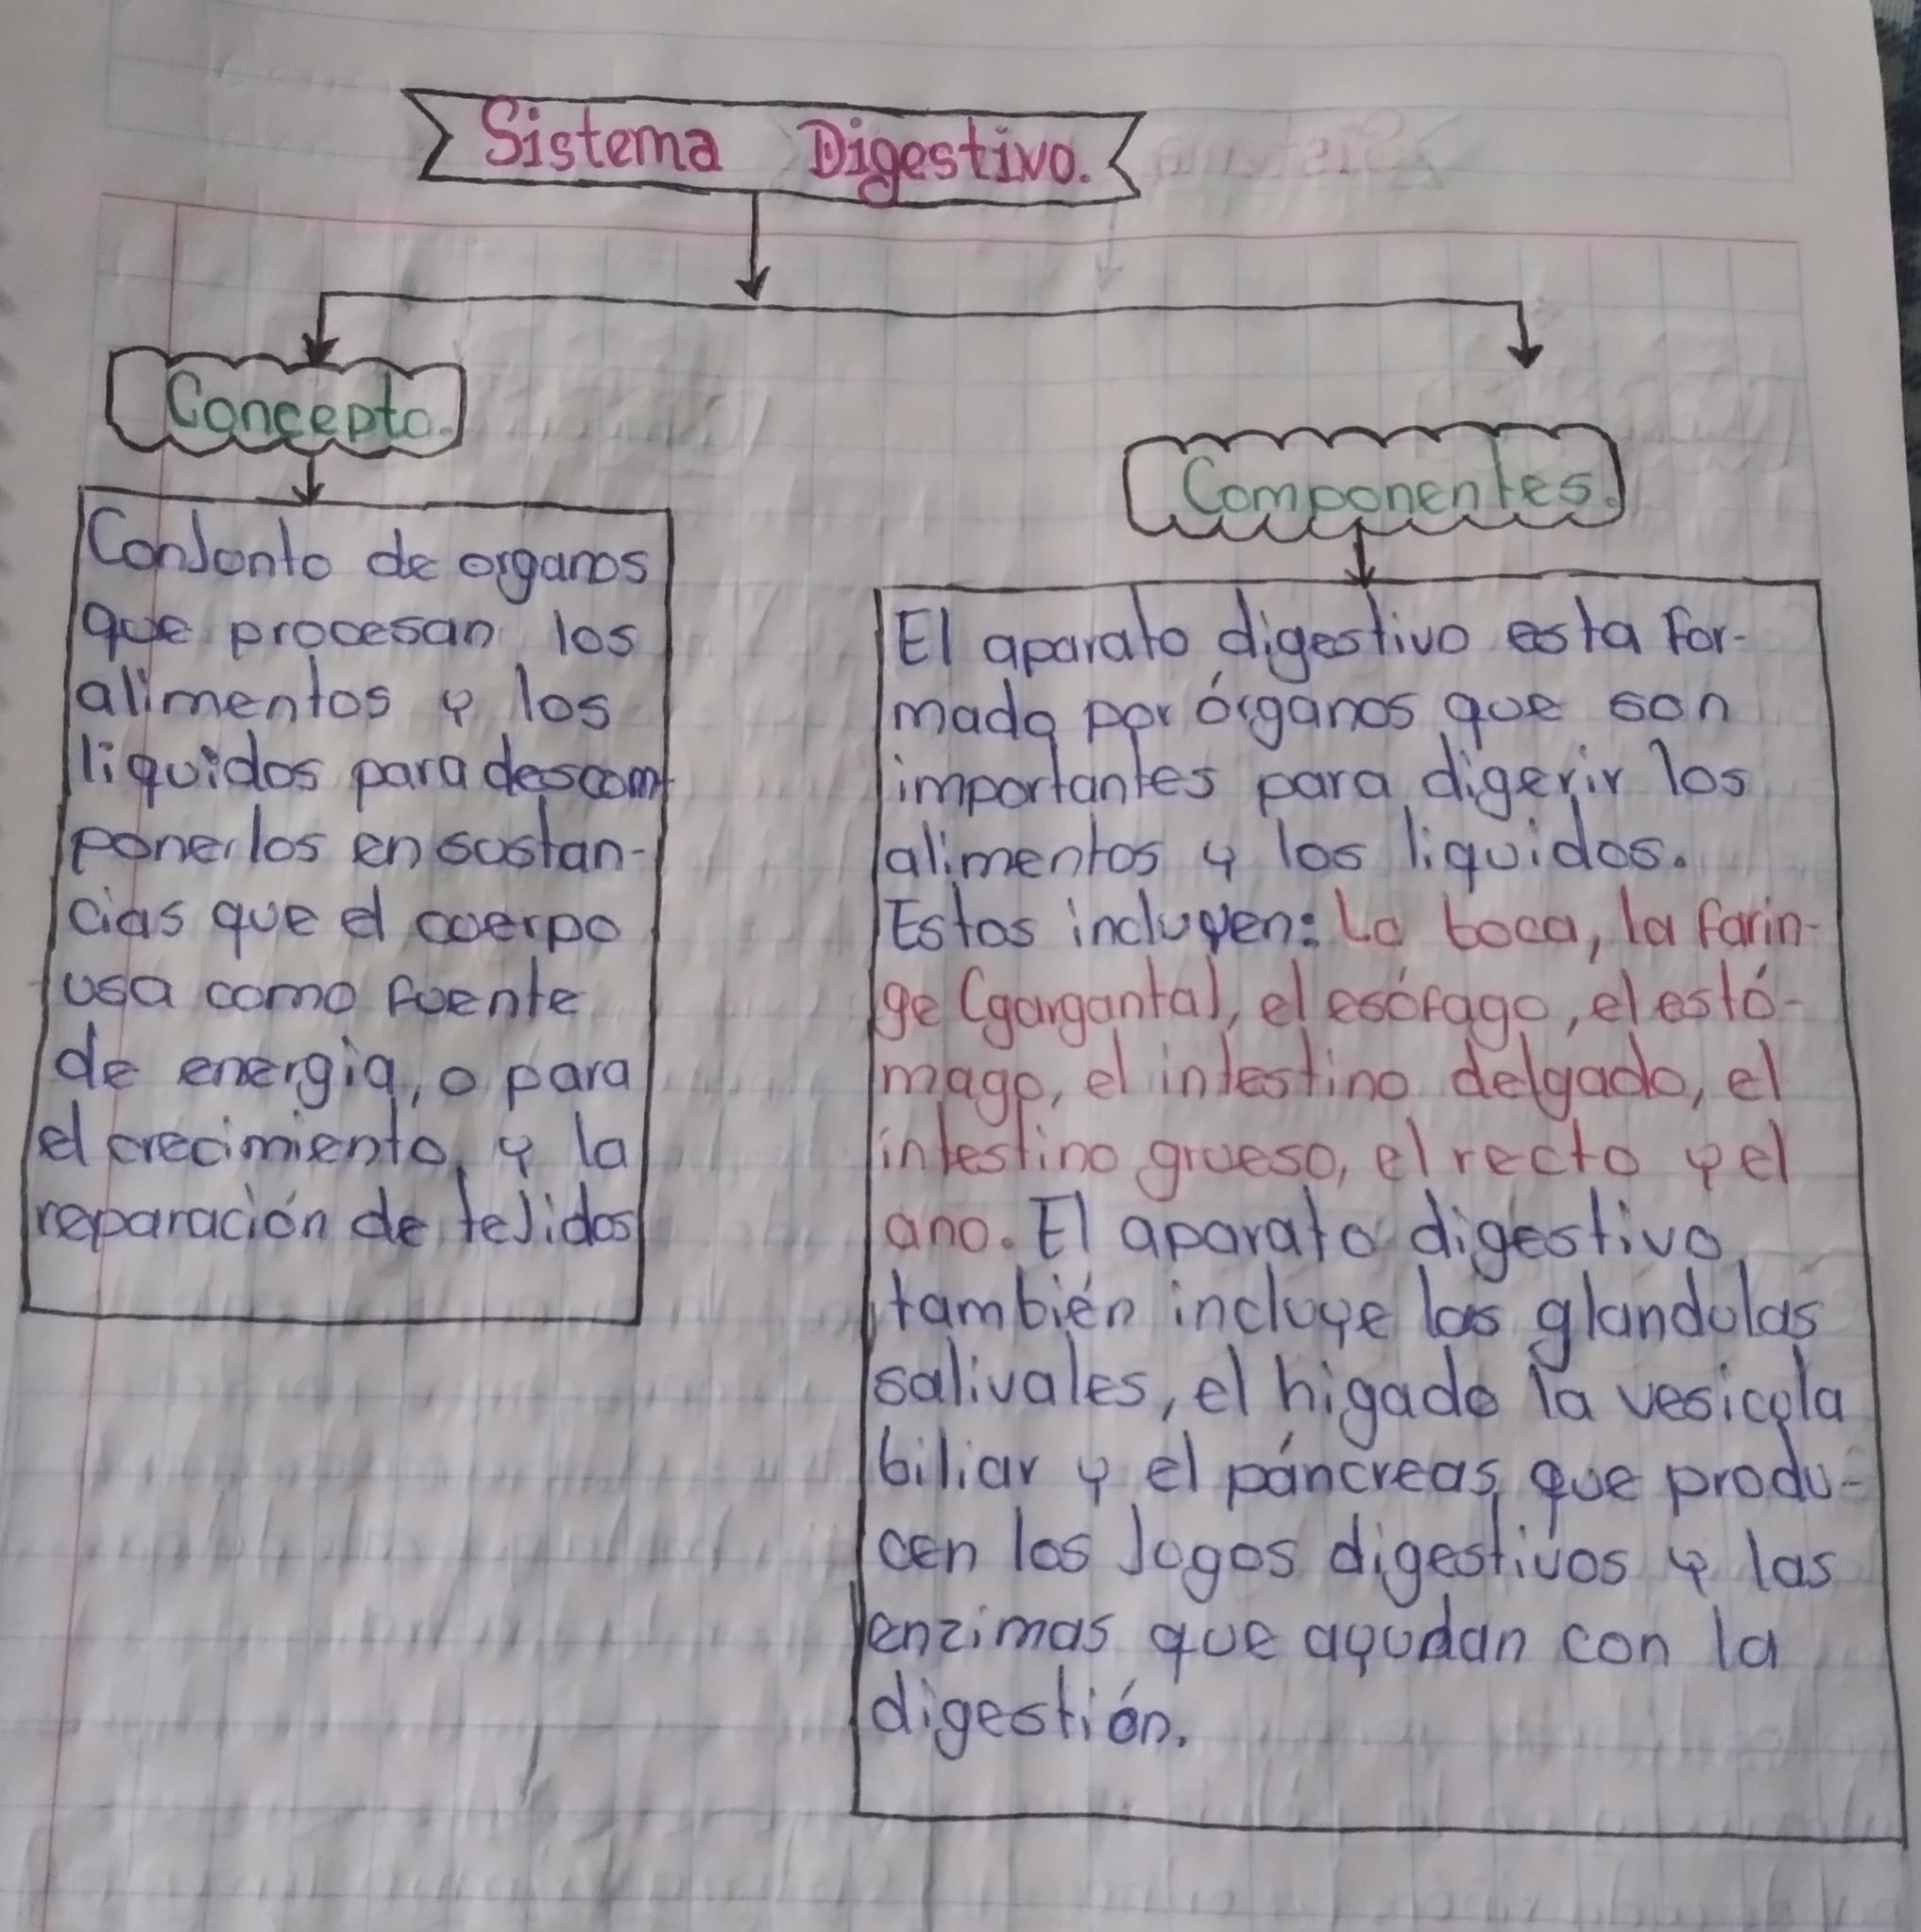 Sistema Digestivo.
Concepto.
Conjunto de organos
que procesan los
alimentos y los
liquidos para descom
ponerlos en sustan-
cias que el cuerpo
usa como fuente
de energia, o para
el crecimiento, y la
reparación de tejidos
Componentes.
El aparato digestivo esta for-
mado por órganos que son
importantes para digerir los
alimentos y los liquidos.
Estos incluyen: La boca, la farin-
ge (garganta), el esófago, el estó-
mago, el intestino delgado, el
intestino grueso, el recto y el
ano. El aparato digestivo
también incluye las glandulas
salivales, el higado la vesicula
biliar y el páncreas que produ-
cen los jugos digestivos y las
enzimas que ayudan con la
digestión.